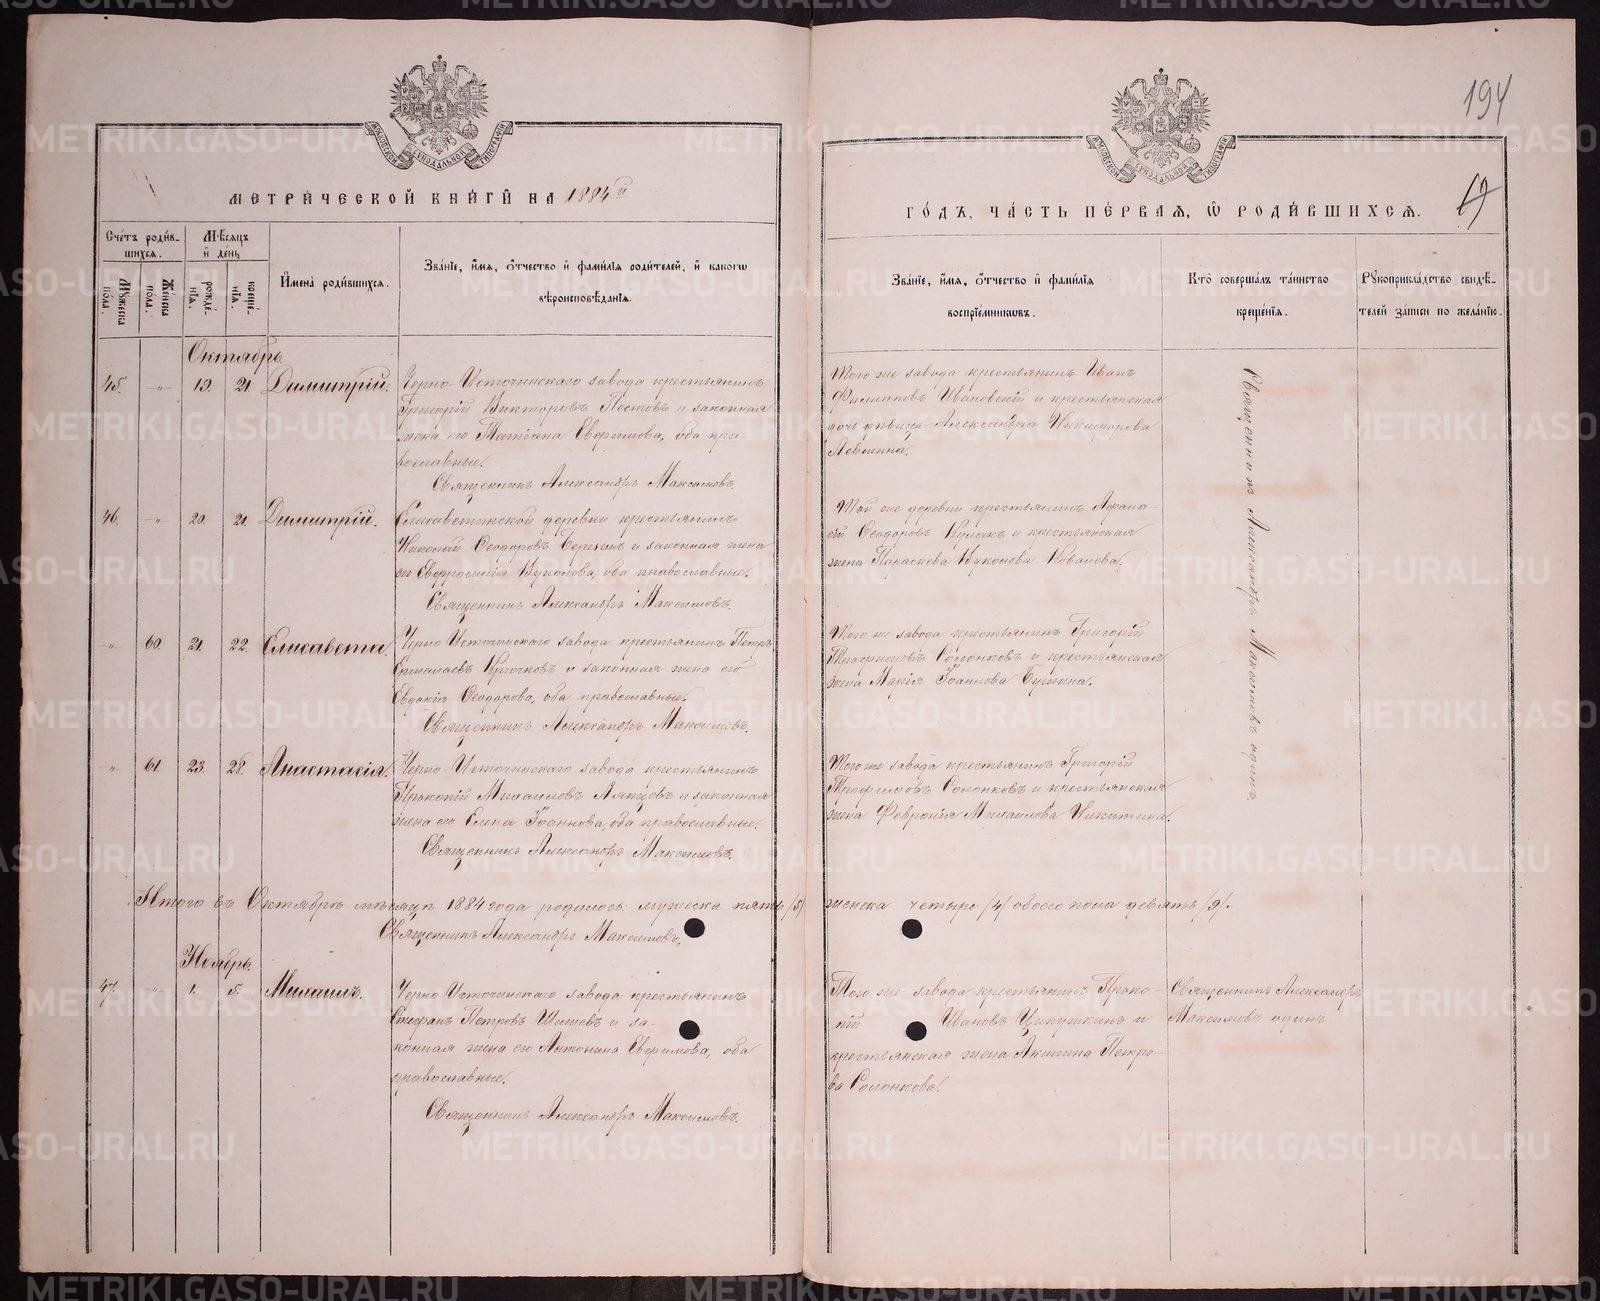 194
МЕТРИ́ЧЕСКОЙ КНИ́ГИ НА 1884й
ГО́ДЪ, ЧА́СТЬ ПЕ́РВАЯ, Ѡ РОДИ́ВШИХСЯ.
19
Сче́тъ роди́в-
шихся.
Мꙋжеска
пола.
Же́нска
по́ла.
Мѣ́сяцъ
и де́нь
рожде́-
нїя.
креще́-
нїя.
Имена̀ роди́вшихся.
Зва́нїе, и́мя, ѻ́тчество и фами́лїя роди́телей, и како́гѡ
вѣроисповѣ́данїя.
Зва́нїе, и́мя, ѻ́тчество и фами́лїя
воспрїе́мникѡвъ.
Кто̀ соверша́лъ та́инство
креще́нїя.
Рꙋкоприкла́дство свидѣ́-
телей за́писи по жела́нїю.
Октябрь.
45. -„- 19. 21. Димитрій.
Черно-Источинскаго завода крестьянинъ
Григорій Викторовъ Пестовъ и законная
жена его Татіана Евѳимова, оба пра-
вославные.
Священникъ Александръ Максимовъ.
Того же завода крестьянинъ Иванъ
Филипповъ Ивановскій и крестьянская
дочь дѣвица Александра Никифорова
Священникъ Александръ Максимовъ одинъ
46. -„- 20. 21. Димитрій.
Елисаветинской деревни крестьянинъ
Николай Ѳеодоровъ Берекинъ и законная жена
его Евфросинія Вуколова, оба православные.
Священникъ Александръ Максимовъ.
Той же деревни крестьянинъ Афана-
сій Ѳеодоровъ Кулакъ и крестьянская
жена Параскева Вуколова Ковалева.
-„- 60. 21. 22. Елисавета.
Черно-Источинскаго завода крестьянинъ Петръ
Ермолаевъ Крючковъ и законная жена его
Евдокія Ѳеодорова, оба православные.
Священникъ Александръ Максимовъ.
Того же завода крестьянинъ Григорій
Трофимовъ Солонковъ и крестьянская
жена Марія Іоаннова
-„- 61. 23. 28. Анастасія.
Черно-Источинскаго завода крестьянинъ
Прокопій Михаиловъ и законная
жена его Елена Іоаннова, оба православные.
Священникъ Александръ Максимовъ.
Того же завода крестьянинъ Григорій
Трофимовъ Солонковъ и крестьянская
жена Февронія Михаилова Никитина.
Итого въ Октябрѣ мѣсяцѣ 1884 года родилось: мужеска пять /5/ женска четыре /4/ обоего пола девять /9/.
Священникъ Александръ Максимовъ.
Ноябрь.
47. „ 1. 5. Михаилъ.
Черно-Источинскаго завода крестьянинъ
Стефанъ Петровъ Шишевъ и за-
конная жена его Антонина Евѳимова, оба
православные.
Священникъ Александръ Максимовъ.
Того же завода крестьянинъ Проко-
пій Ивановъ Ципушкинъ и
крестьянская жена Акилина Петро-
ва Солонкова.
Священникъ Александръ
Максимовъ одинъ
METRIKI.GASO-URAL.RU